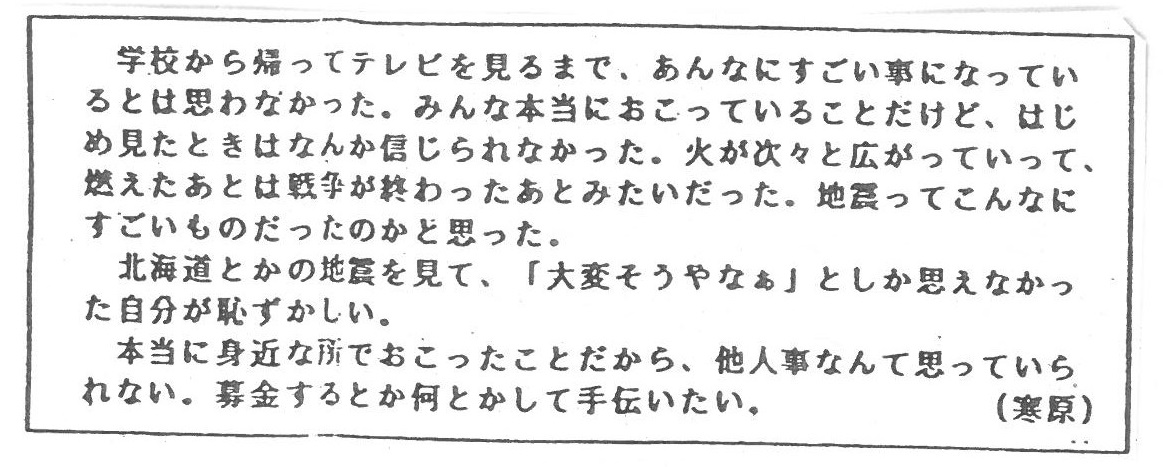 学校から帰ってテレビを見るまで、あんなにすごい事になってい
るとは思わなかった。みんな本当におこっていることだけど、はじ
め見たときはなんか信じられなかった。火が次々と広がっていって、
燃えたあとは戦争が終わったあとみたいだった。地震ってこんなに
すごいものだったのかと思った。
北海道とかの地震を見て、「大変そうやなぁ」としか思えなかっ
た自分が恥ずかしい。
本当に身近な所でおこったことだから、他人事なんて思っていら
れない。募金するとか何とかして手伝いたい。
(寒原)